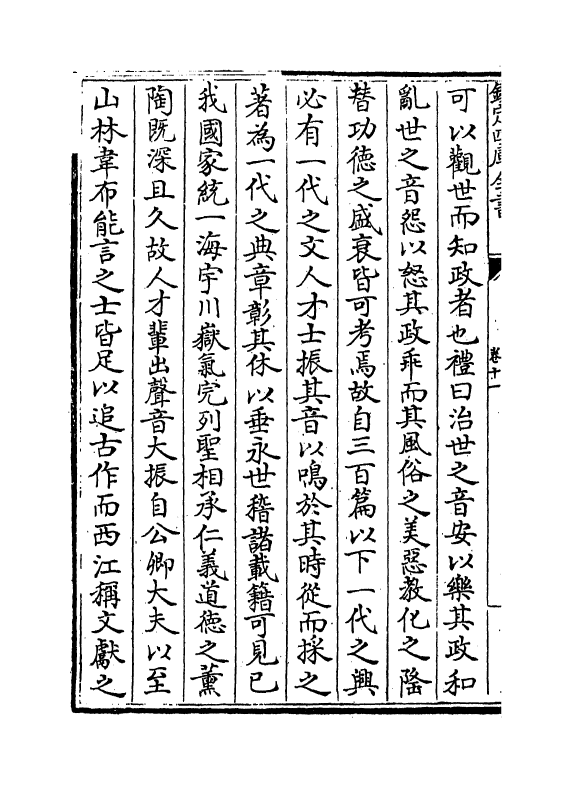 欽定四庫全書
卷十一
可以觀世而知政者也禮曰治世之音安以樂其政和
亂世之音怨以怒其政乖而其風俗之美惡教化之隆
替功徳之盛衰皆可考焉故自三百篇以下一代之興
必有一代之文人才士振其音以鳴於其時從而採之
著為一代之典章彰其休以垂永世稽諸載籍可見已
我國家統一海宇川嶽氣完列聖相承仁義道徳之薰
陶既深且久故人才輩出聲音大振自公卿大夫以至
山林韋布能言之士皆足以追古作而西江稱文獻之